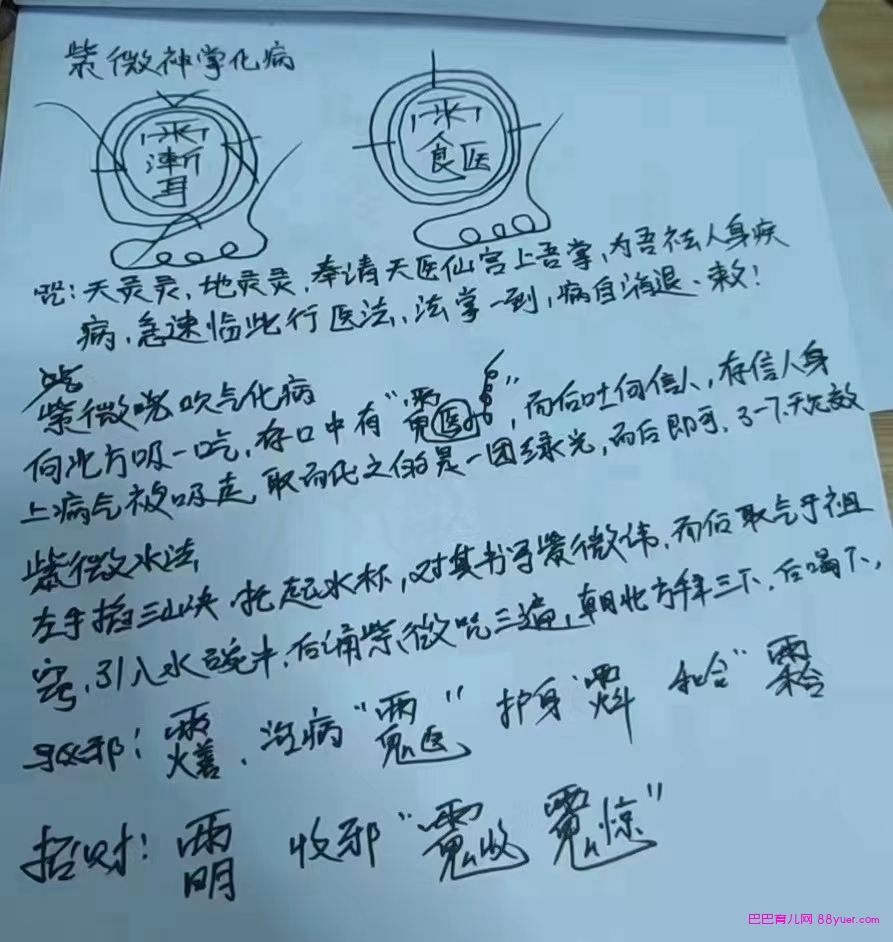 紫微神掌化病
雨 漸 耳
雨 食 医
咒：天灵灵，地灵灵，奉请天医仙宫上吾掌，为吾祛人身疾
病，急速临此行医法，法掌一到，病自消退、敕！
紫微 吹气化病
向北方吸一吃，存口中有“ ”，而后吐向信人，存信人身
上病气被吸走，取而代之的是一团绿光，而后即可，3-7天见效
紫微水法
左手掐三山诀，托起水杯，对其书写紫微讳，而后取气于祖
窍，引入水碗中，后诵紫微咒三遍，朝北方拜三下，后喝下，
邪：雨火善、治病“雨鬼医” 护身“ 和合“
招财：雨明 收邪“雨鬼收 雨鬼惊”
巴巴育儿网 88yuer.com